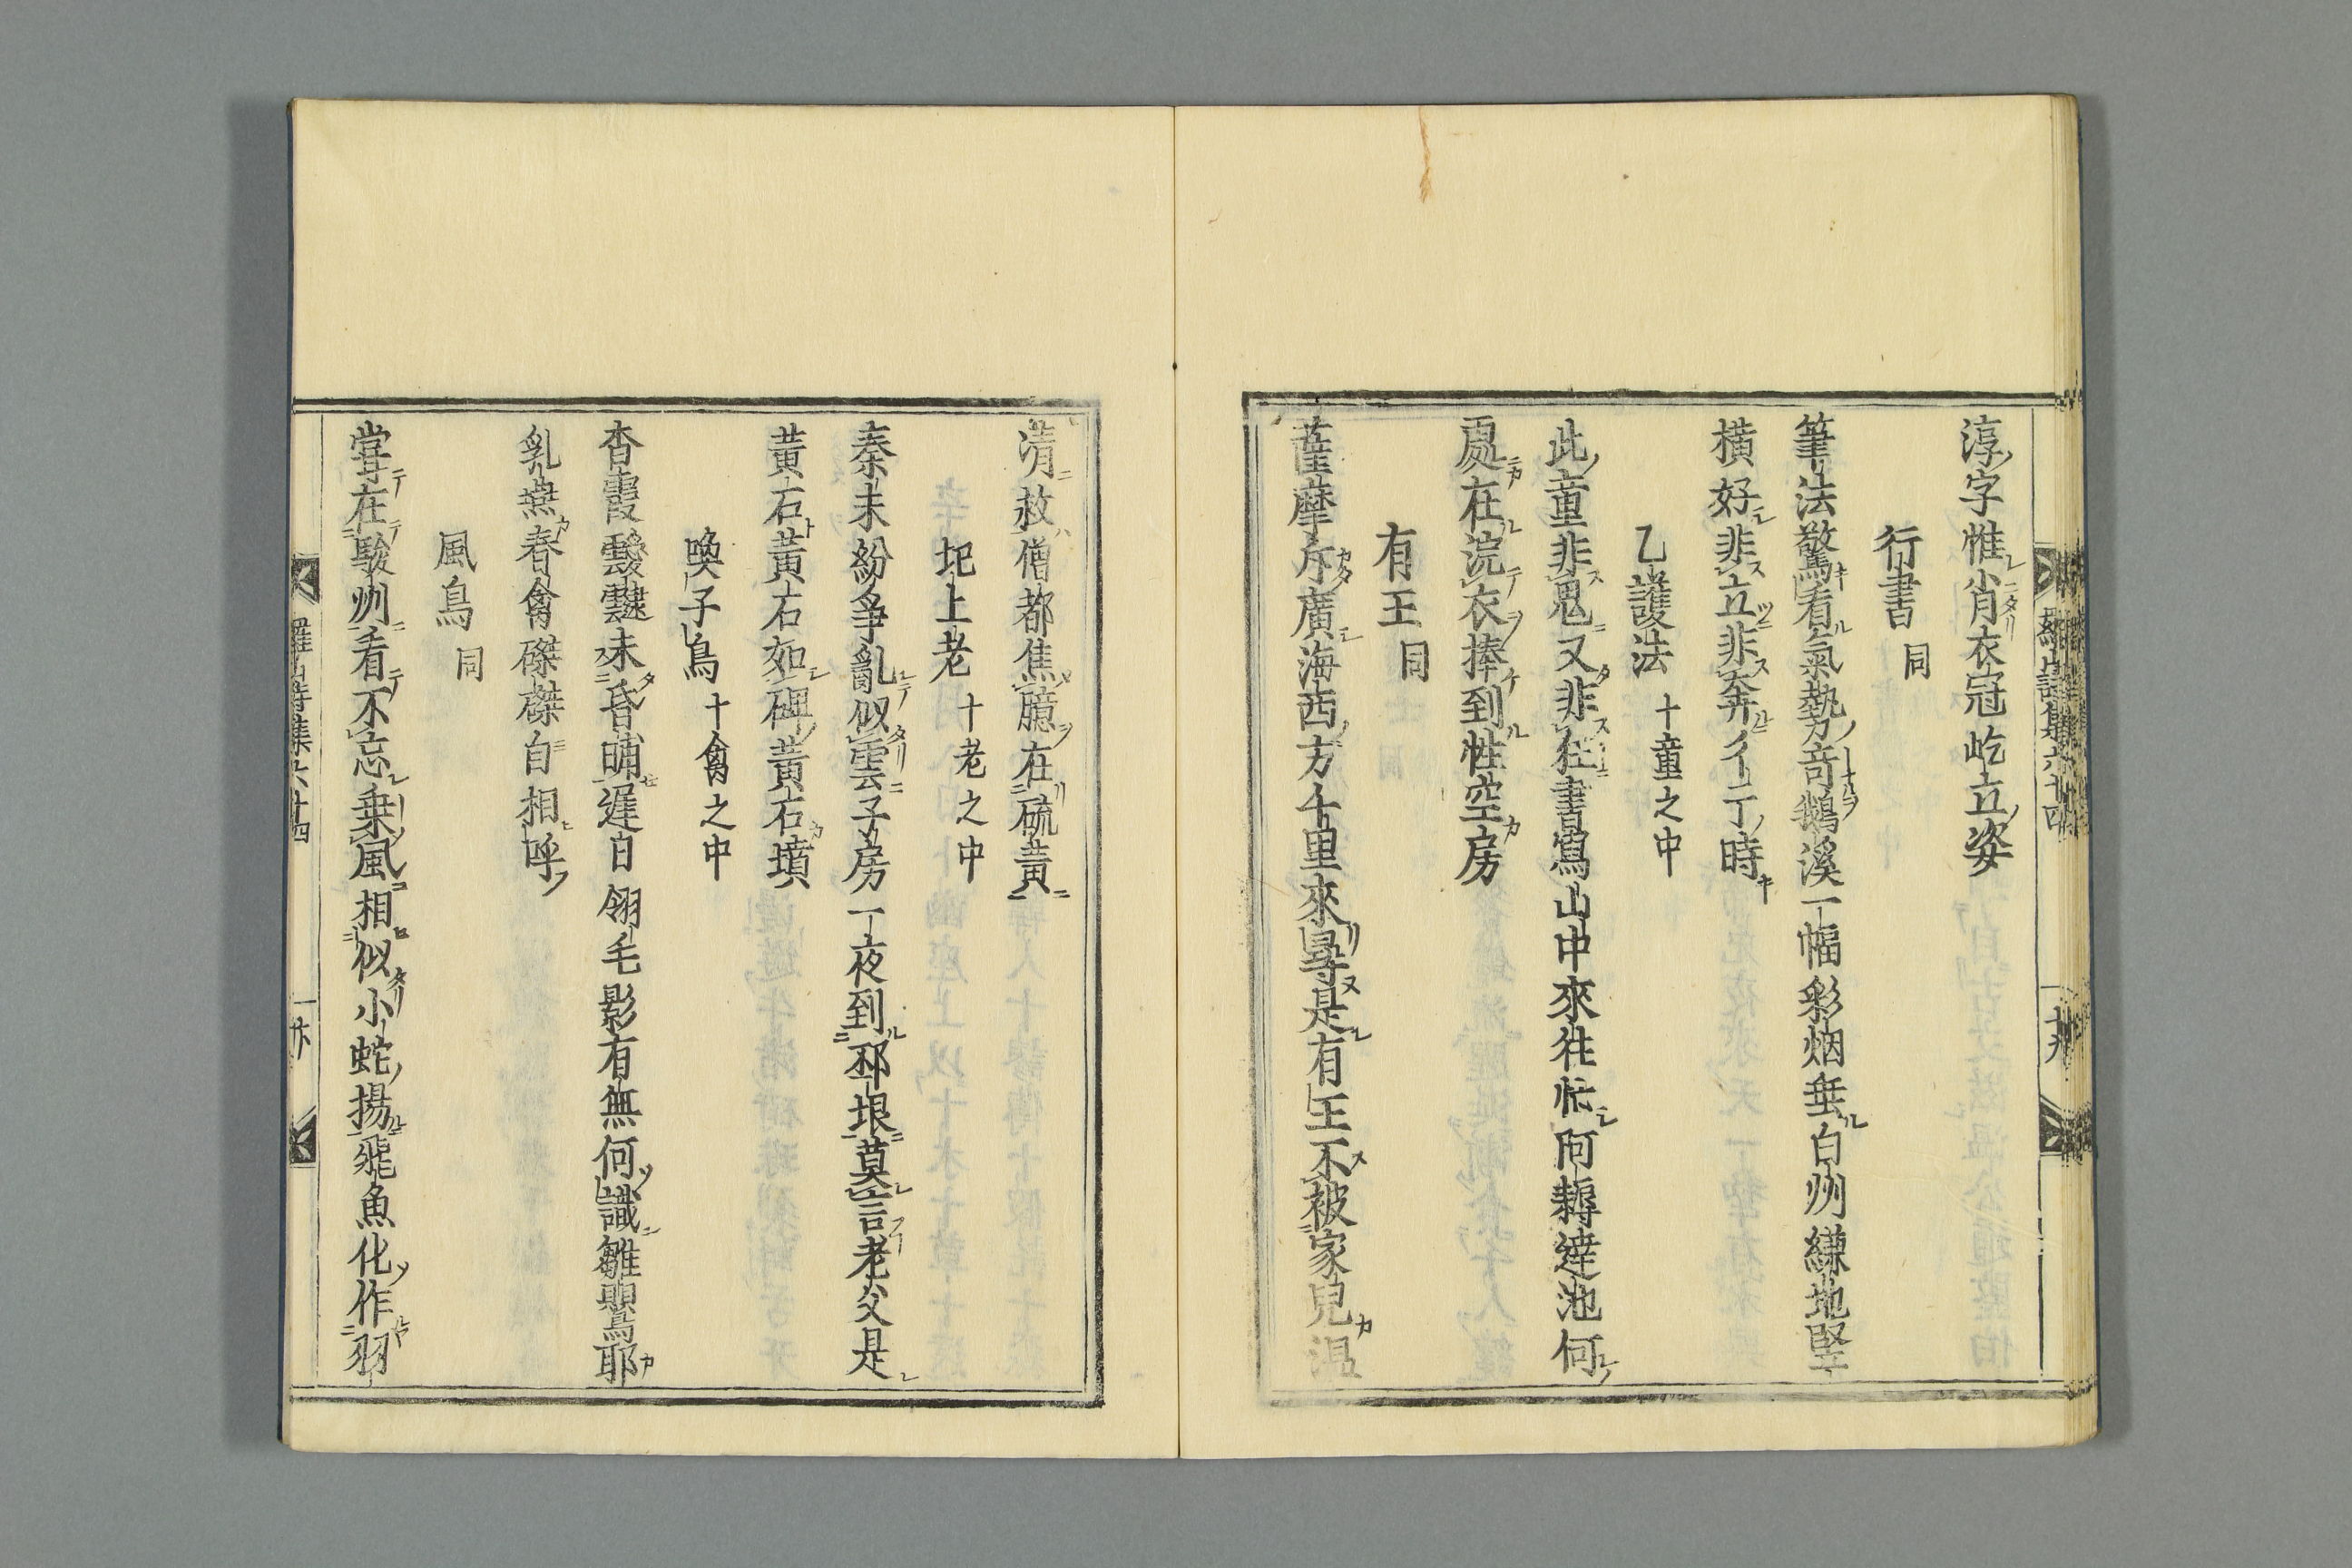 淳字惟肖衣冠屹立姿
行書 同
筆法驚看氣勢奇鵝溪一幅彩烟垂白州縑地竪
横好非立非奔彳亍時
乙護法 十童之中
此童非鬼又非狂書寫山中來往忙阿耨達池何
處在浣衣捧到性空房
有王 同
薩摩斥廣海西方千里來尋是有王不被家兒温
清救僧都焦臆在硫黄
圯上老 十老之中
秦末紛爭亂似雲子房一夜到邳垠莫言老父是
黄石黄石如碑黄石墳
喚子鳥 十禽之中
杳霞靉靆未昏晡遲日翎毛影有無何識雛鸎耶
乳燕春禽磔磔自相呼
風鳥 同
嘗在駿州看不忘乗風相似小蛇揚飛魚化作羽
羅山詩集六十四